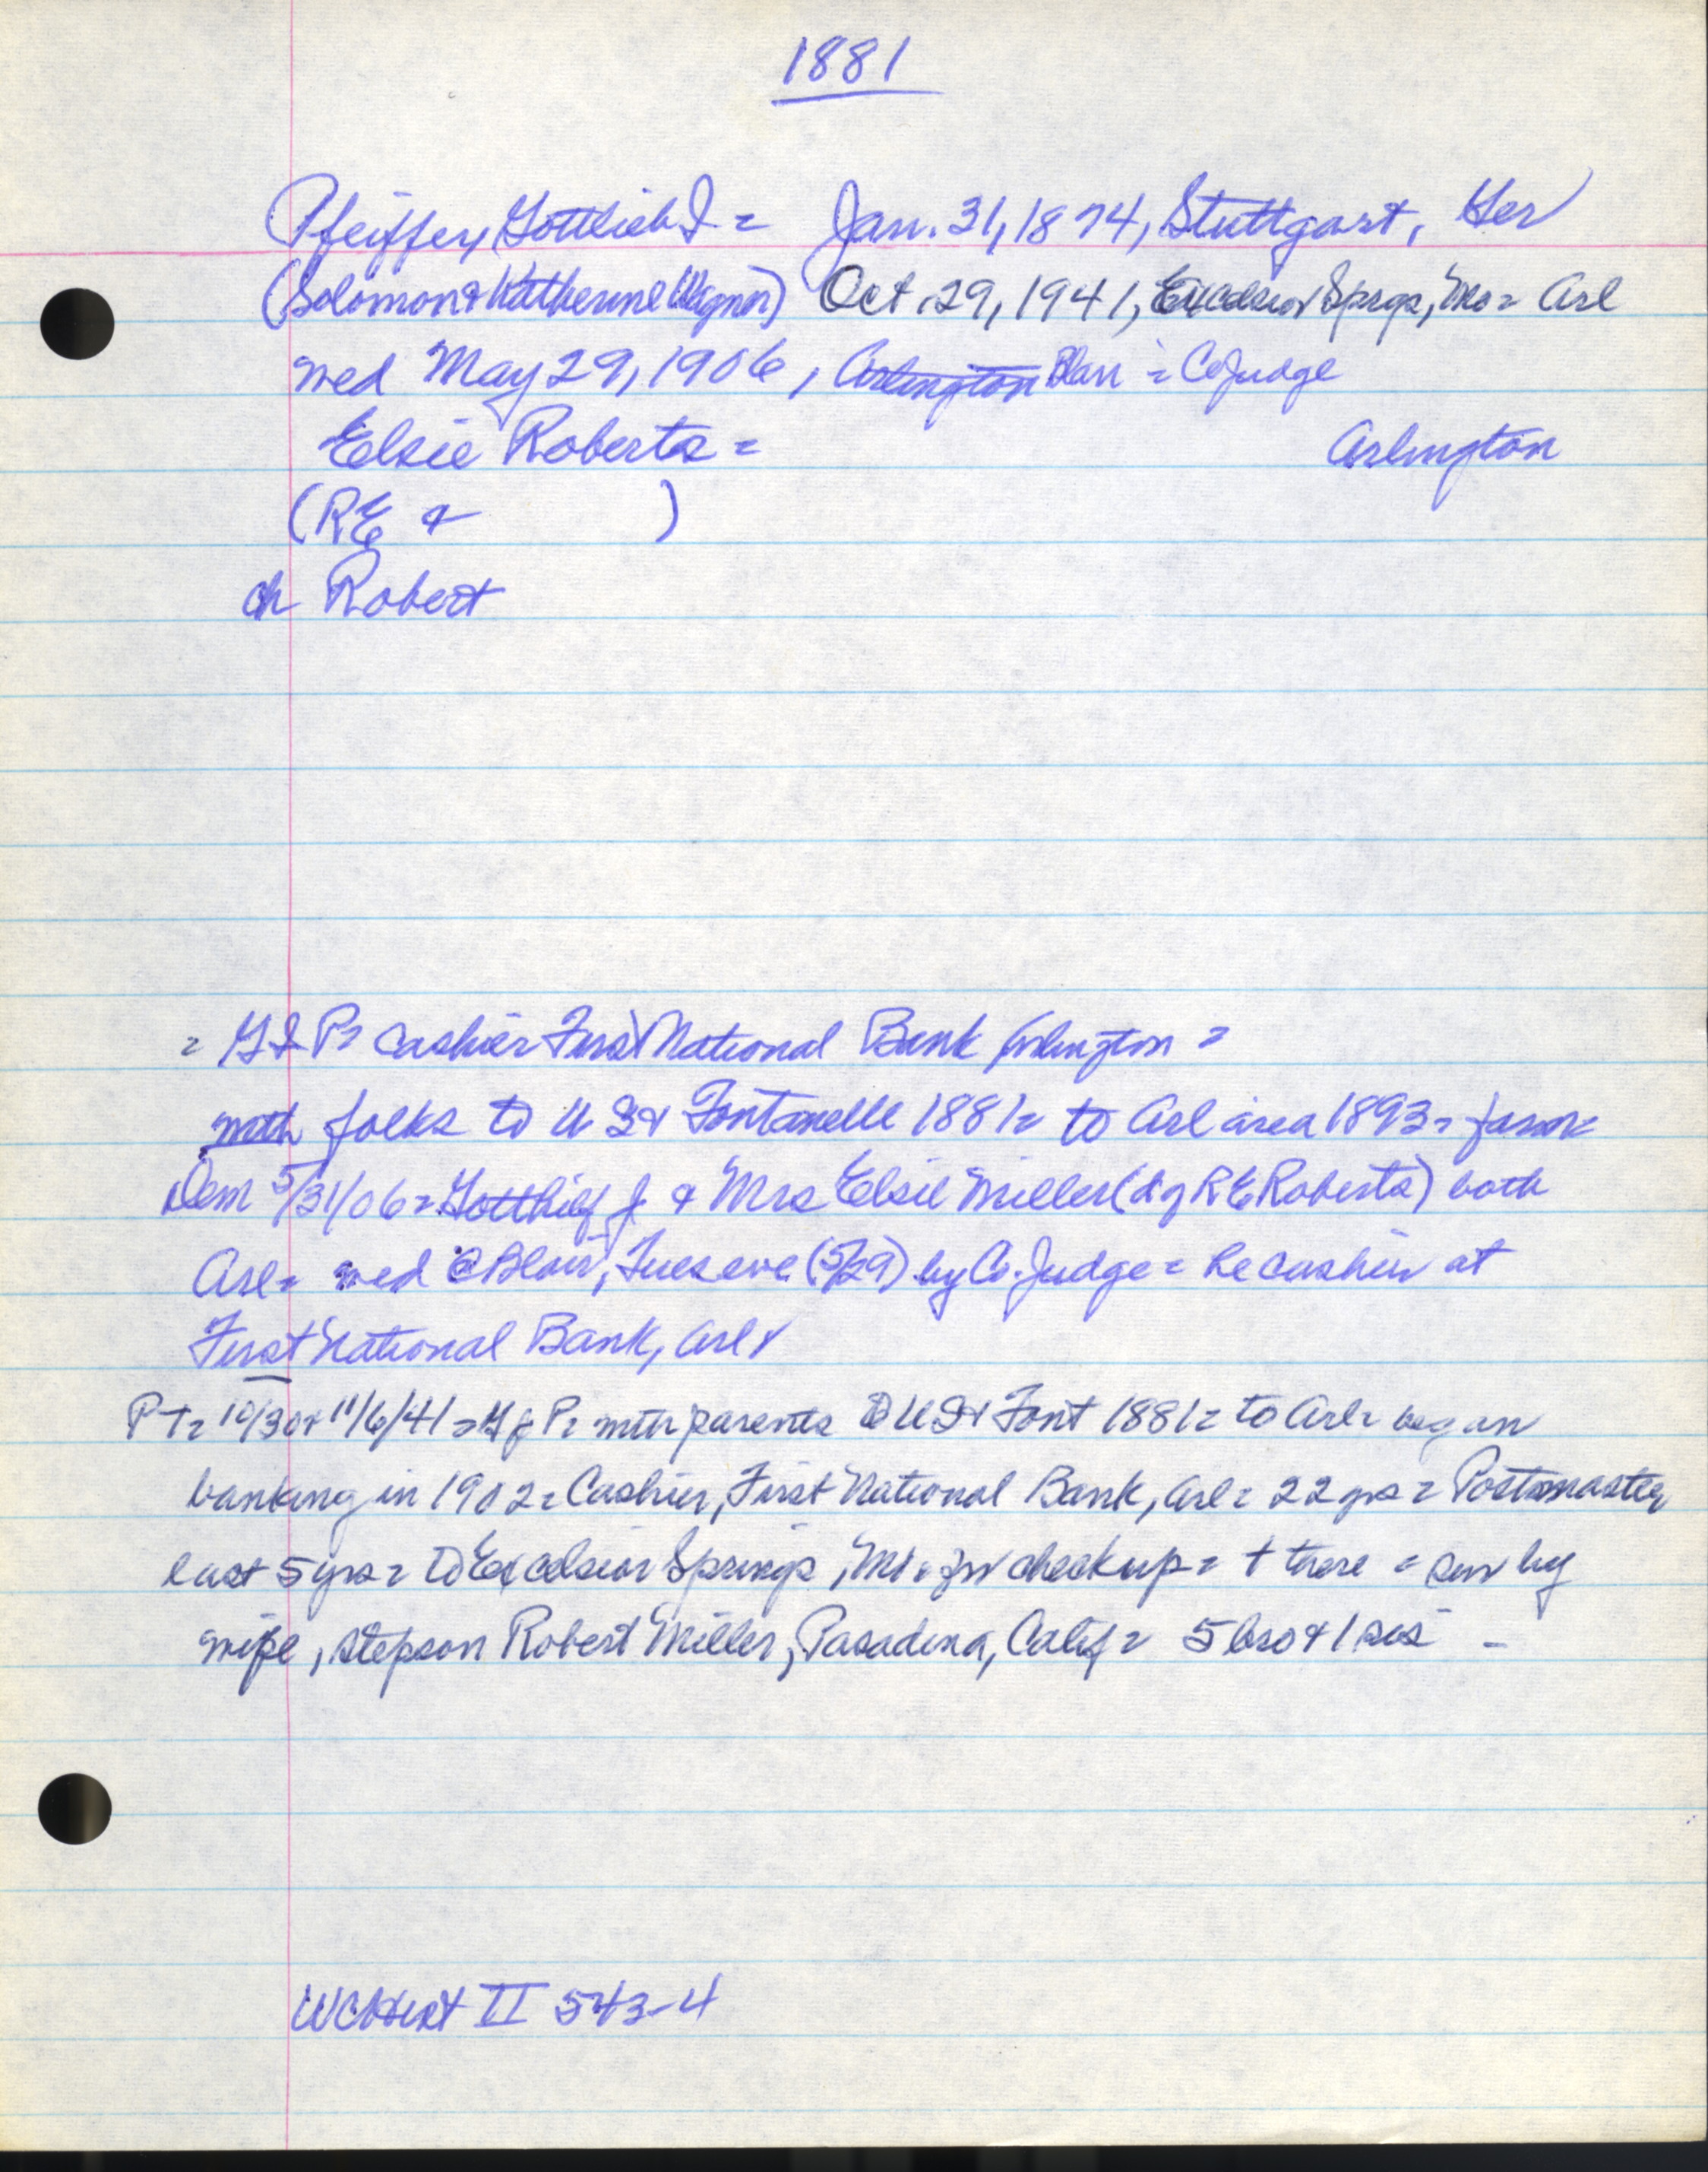 1881
Pfeiffer, Gottlieb J = Jan. 31, 1874, Stuttgart, Ger
(Solomon & Katherine Wagner) Oct. 29, 1941, Excelsior Sprgs, Mo = Arl
wed May 29, 1906, Arlington Blair = Co Judge
Elsie Roberts = Arlington
(RE & )
ch Robert
= GJP = cashier First National Bank Arlington =
with folks to US & Fontanelle 1881 = to Arl area 1893 = farm =
Dem 5/31/06 = Gottlief J & Mrs Elsie Miller (dg RE Roberts) both
Arl = wed @ Blair, Tues eve (5/29) by Co. Judge = he cashier at
First National Bank, Arl &
PT = 10/30 & 11/6/41 = GJP = with parents to US & Font 1881 = to Arl = began
banking in 1902 = Cashier, First National Bank, Arl = 22 yrs = Postmaster
last 5 yrs = to Excelsior Springs, Mo for checkup = † there = sur by
wife, stepson Robert Miller, Pasadena, Calif = 5 bro & 1 sis -
WCHist II 543-4